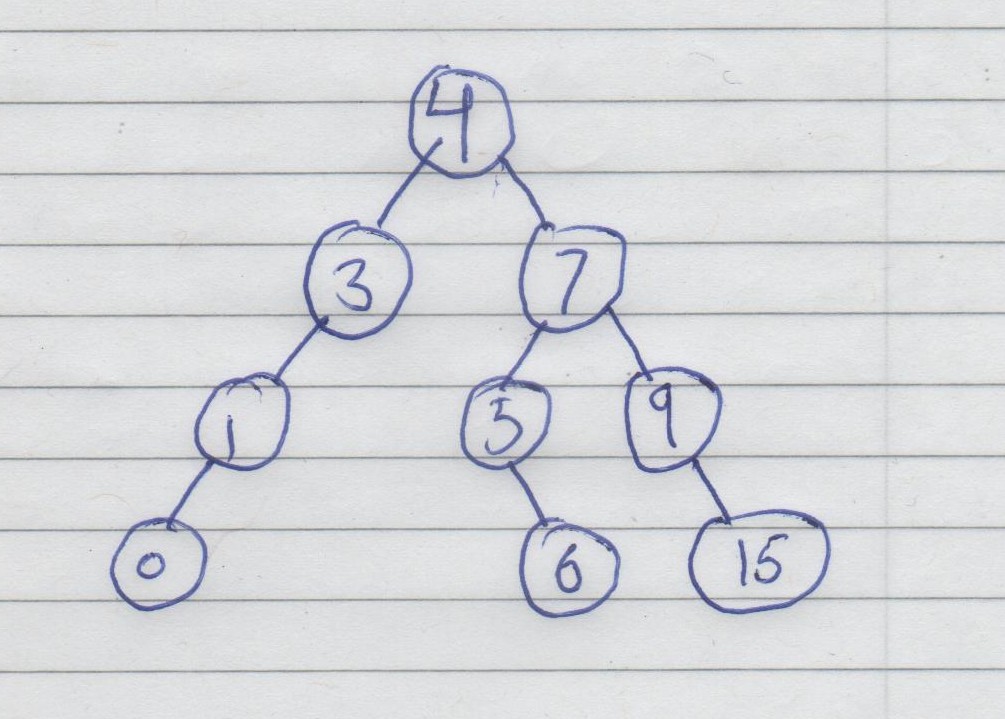 4
3 7
1 5 9
0 6 15